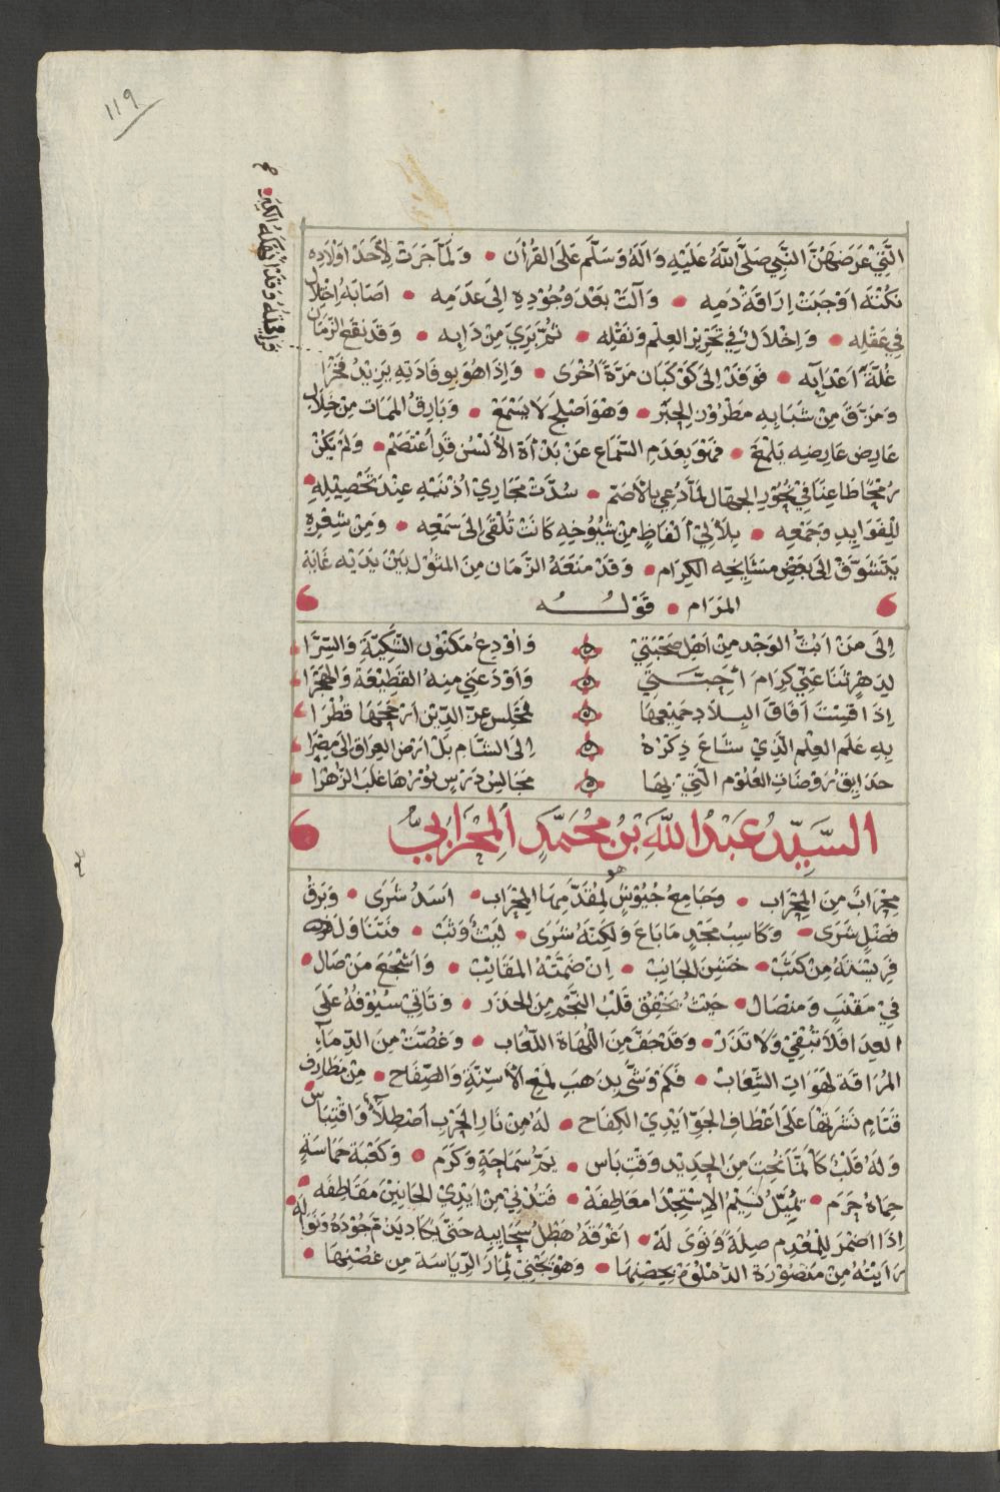 ١١٩
الَّتِي عَرَضَهُنَّ النَّبِي صَلَّى اللَّهُ عَلَيْهِ وَآلِهِ وَسَلَّم عَلَى القُرْآن • وَلَمَّا جَرَتْ لِأَحَدْ اَوْلَادِهِ
نَكْتَه اَوْجَبَتْ اِرَاقَةْ دَمِه • وَآلَتْ بَعْدَ وُجُوْدِهِ اِلىَ عَدَمِه • اصَابَهُ اِخْلَالٌ
فِي عَقْلِه • وَاِخْلَالٌ فِي تَحْرِيْرِ العِلْم وَنَقْلِه • ثُمَّ بَرِيَ مِنْ دَائِه • وَقَدْ نَقَعَ الزَّمَان
غُلَّةَ اَعْدَائِه • فَوَفَدْ اِلىَ كَوْكَبَان مَرَّةً اُخْرَى • وَاِذَا هُوَ بِوِفَادَتِهِ يَزِيْدُ فَخْرًا
وَمَزَّقَ مِنْ شَبَابِهِ مَطْرُوْز الحِبَر • وَهْوَ اَصْلَخ لَا يَسْمَعْ • وَبَارِقُ المَمَات مِنْ خِلَالِ
عَارِضِ عَارِضِه يَلْمَعْ • فَهْوَ بِعَدَمِ السَّمَاع عَنْ بَذْأَة الأَلْسُن قَدِ اعْتَصَمْ • وَلَمْ يَكُنْ
رُمْحًا طَاعِنًا فِي نُحُوْرِ الجُهَّال لَمَّا دُعِيَ بِالأَصَمّ • سُدَّتْ مَجَارِيْ اُذْنَيْهِ عِنْدَ تَحْصِيْلِهِ
لِلفَوَايِدِ وَجَمْعِه • بِلَآلِيْ اَلْفَاظٍ مِنْ شُيُوْخِهِ كَانَتْ تُلْقَى اِلىَ سَمْعِه • وَمِنْ شِعْرِهِ
يَتَشَوَّقْ اِلىَ بَعْضِ مَشَايِخِه الكِرَام • وَقَدْ مَنَعَهُ الزَّمَان مِنَ المُثُوْل بَيْنَ يَدَيْه غَايَة
المَرَام • قَوْلُهُ
اِلَى مَنْ اَبُثُّ الوَجْد مِنْ اَهْلِ صُحْبَتِيْ وَاُوْدِعُ مَكْنُوْن الشَّكِيَّةِ وَالسِّرَّا
لِدَهْرٍ ثَنَا عَنِّيْ كِرَامَ اَحِبَّتِيْ وَاَوْدَعَنِي مِنهُ القَطِيْعَةَ وَالهَجْرَا
اِذَا قِسْتَ اَفَاقَ البِلَادِ جَمِيْعِهَا فَمَجْلِس عِزّ الدِّيْن اَرْجَحُهَا قُطْرَا
بِهِ عَلَم العِلْم الَّذِيْ شَاعَ ذِكْرُهُ اِلىَ الشَّامِ بَلْ اَرْضِ العِرَاق اِلىَ مِصْرَا
حَدَايِقُ رَوْضَاتِ العُلُوْم الَّتِيْ بِهَا مَجَالِسُ دَرْسٍ نُوْرُهَا غَلَبَ الزُّهْرَا
السَّيِّد عَبْدُ اللَّهِ بْنُ مُحَمَّدٍ المِحْرَابِيّ
مِحْرَابٌ مِنَ المِحْرَاب • وَجَامِعُ جُيُوْشٍ لِمُقَدَّمِهَا المِحْرَاب • اَسَدُ شَرَى • وَبَرْقُ
فَضْلٍ شَرَى • وَكَاسِبُ مَجْدٍ مَا بَاعَ وَلَكِنَّهُ شَرَى • لَيْثٌ وَثَبَ • فَتَنَاوَلَ
فَرِيْسَتَهُ مِنْ كَثَبْ • خَشِنَ الجَانِبْ • اِنْ ضَمَّتْهُ المَقَانِبْ • وَاَشْجَعَ مَنْ صَال
فِيْ مِقْنَبٍ وَمِنْصَال • حَيْثُ يَخْفِقُ قَلْبُ النَّجْم مِنَ الحَذَر • وَتَاتِيْ سُيُوْفُهُ عَلَى
العِدَا فَلَا تُبْقِيْ وَلَا تَذَرْ • وَقَدْ جَفَّ مِنَ اللَّهَاة اللُّعَاب • وَغُصَّتْ مِنَ الدِّمَآءِ
المُرَاقَة لَهَوَاتِ الشِّعَابْ • فَكَمْ وَشَّى بِذَهَبِ لَمْعِ الأَسِنَّةِ وَالصِّفَاح • مِنْ مَطَارِف
قَتَامٍ نَشَرَتْهَا عَلَى اَعْطَافِ الجَوِّ اَيْدِيْ الكِفَاح • لَهُ مِنْ نَارِ الحَرْبِ اصْطِلَاءٌ وَاقْتِبَاسْ
وَلَهُ قَلْبٌ كَاَنَّمَا نُحِتَ مِنَ الحَدِيْدِ وَقْتَ بَاس • يَمُّ سَمَاحَةٍ وَكَرَم • وَكَعْبَة حَمَاسَةٍ
حِمَاهُ حَرَم • تُمِيْلُ نَسِيْمُ الاِسْتِجْدَا مَعَاطِفَهْ • فَتَدْنيْ مِنْ اَيْدِيْ الجَانِيْنَ مَقَاطِفَه
اِذَا اَضْمَرَ لِلمُعْدِمِ صِلَةً وَنَوَى لَهُ • اَغْرَقَهُ هَطْلُ سَحَايِبِهِ حَتىَّ يَكَادَ يَذُمّ جُوْدَهُ وَنَوَالَهُ
رَاَيْتُهُ مِنْ مَنْصُوْرَة الدُّمْلُوْه بِحِصْنِهَا • وَهْوَ يَجْتَنِيْ ثِمَارَ الرِّيَاسَة مِن غُصْنِهَا